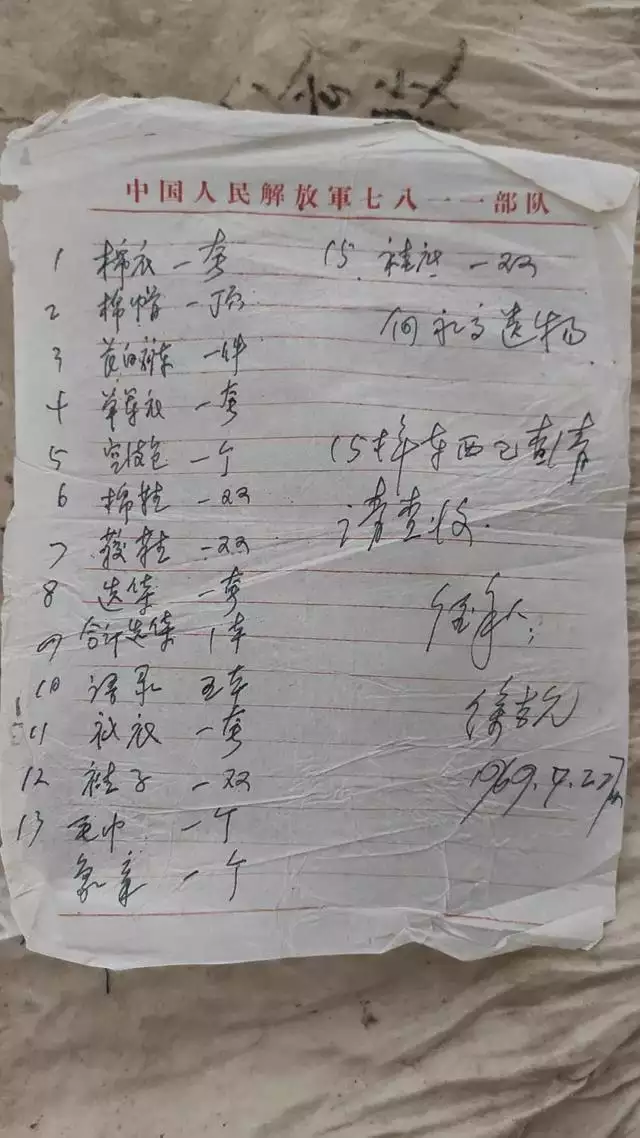 中国人民解放軍七八一一部队
1 棉衣 一套
2 棉帽 一顶
3 一件
4 单军衣 一套
5 挎包 一个
6 棉鞋 一双
7 胶鞋 一双
8 选集 一套
9 合订选集 1本
10 语录 五本
11 衬衣 一套
12 袜子 一双
13 毛巾 一个
像章 一个
15 袜底 一双
何礼高遗物
15样东西已查清
请查收
经手人:
徐吉元
1969.4.27日